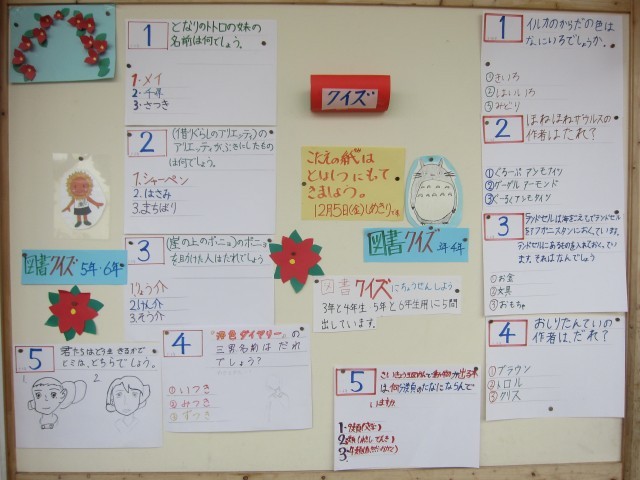 1
となりのトトロの妹の
名前は何でしょう。
1.メイ
2.千尋
3.さつき
2
(借りぐらしのアリエッティ)の
アリエッティがぶきにしたもの
は何でしょう。
1.シャーペン
2.はさみ
3.まちばり
3
(崖の上のポニョ)のポニョ
を助けた人はだれでしょう
1.りょう介
2.けん介
3.そう介
図書クイズ 5年・6年
5
君たちはどう生きるかで
ヒミは、どちらでしょう。
1
2
4
三男名前はだれ
でしょう?
①いつき
②みつき
クイズ
こたえの紙は
としょしつにもて
きましょう。
12月5日(金)しめきりです
図書クイズ 3年・4年
図書クイズにちょうせんしよう
3年と4年生 5年と6年生用に5問
出しています。
5
1
イルカのからだの色は
なにいろでしょうか。
①きいろ
②はいいろ
③みどり
2
ほねほねザウルスの
作者はだれ?
①ぐるーぷ アンモナイツ
②グーグル アーモンド
3
ランドセルは海をこえてでランドセル
をアフガニスタンにおくしています。
ランドセルにあるものを入れておくってい
ます。それはなんでしょう
①お金
②文具
③おもちゃ
4
おしりたんていの
作者は、だれ?
①ブラウン
②トロル
③クリス